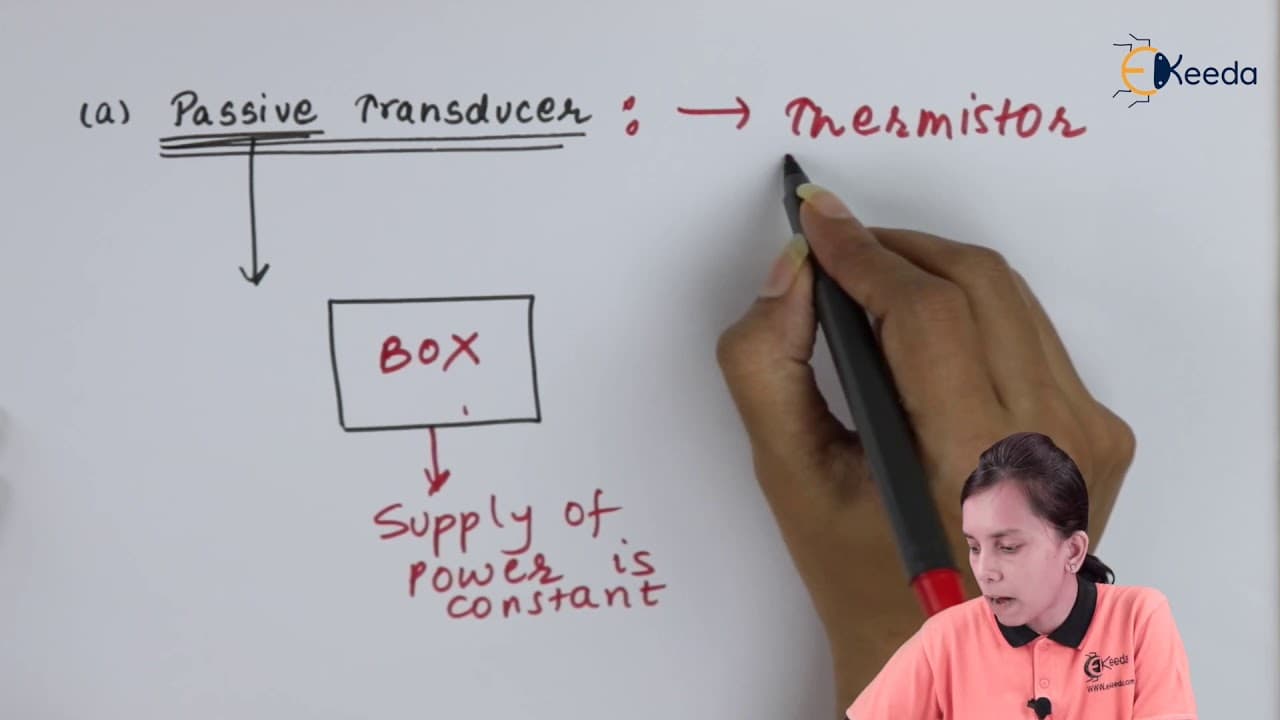 EKeeda
(a) Passive Transducer : → Thermistor
BOX
Supply of
power is
constant
EKeeda
www.ekeeda.com